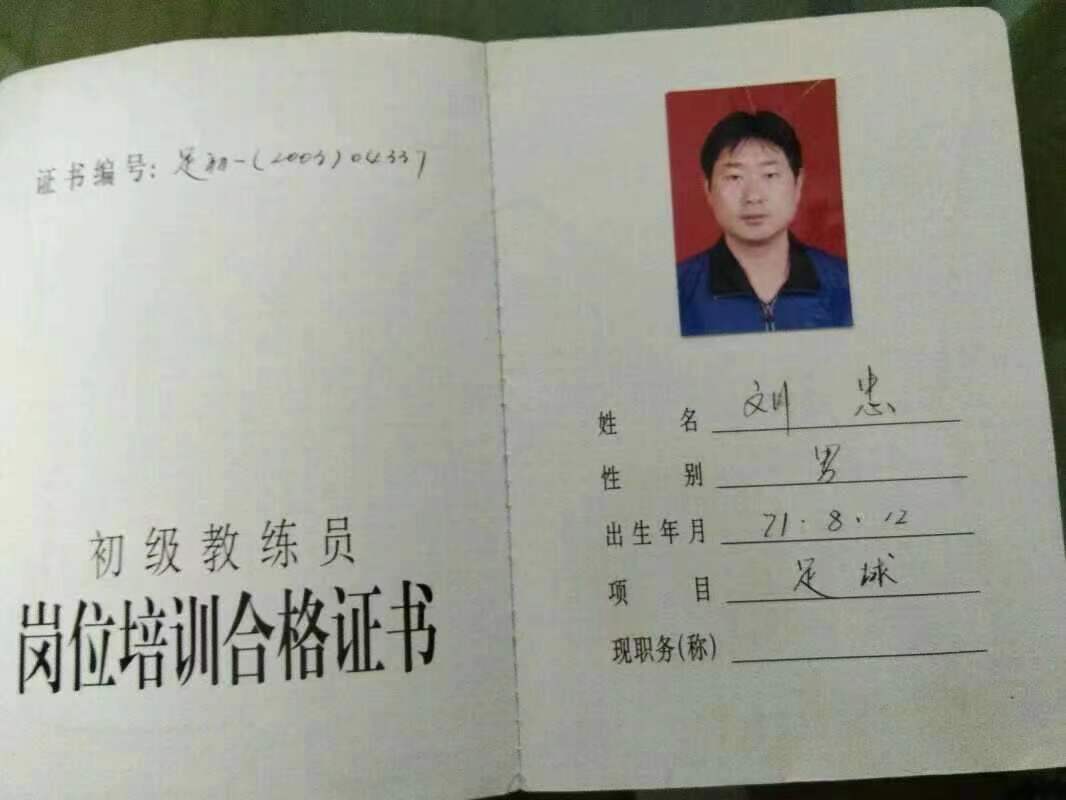 证书编号：足初-(2003)04337
初级教练员
岗位培训合格证书
姓名 刘忠
性别 男
出生年月 71.8.12
项目 足球
现职务(称)